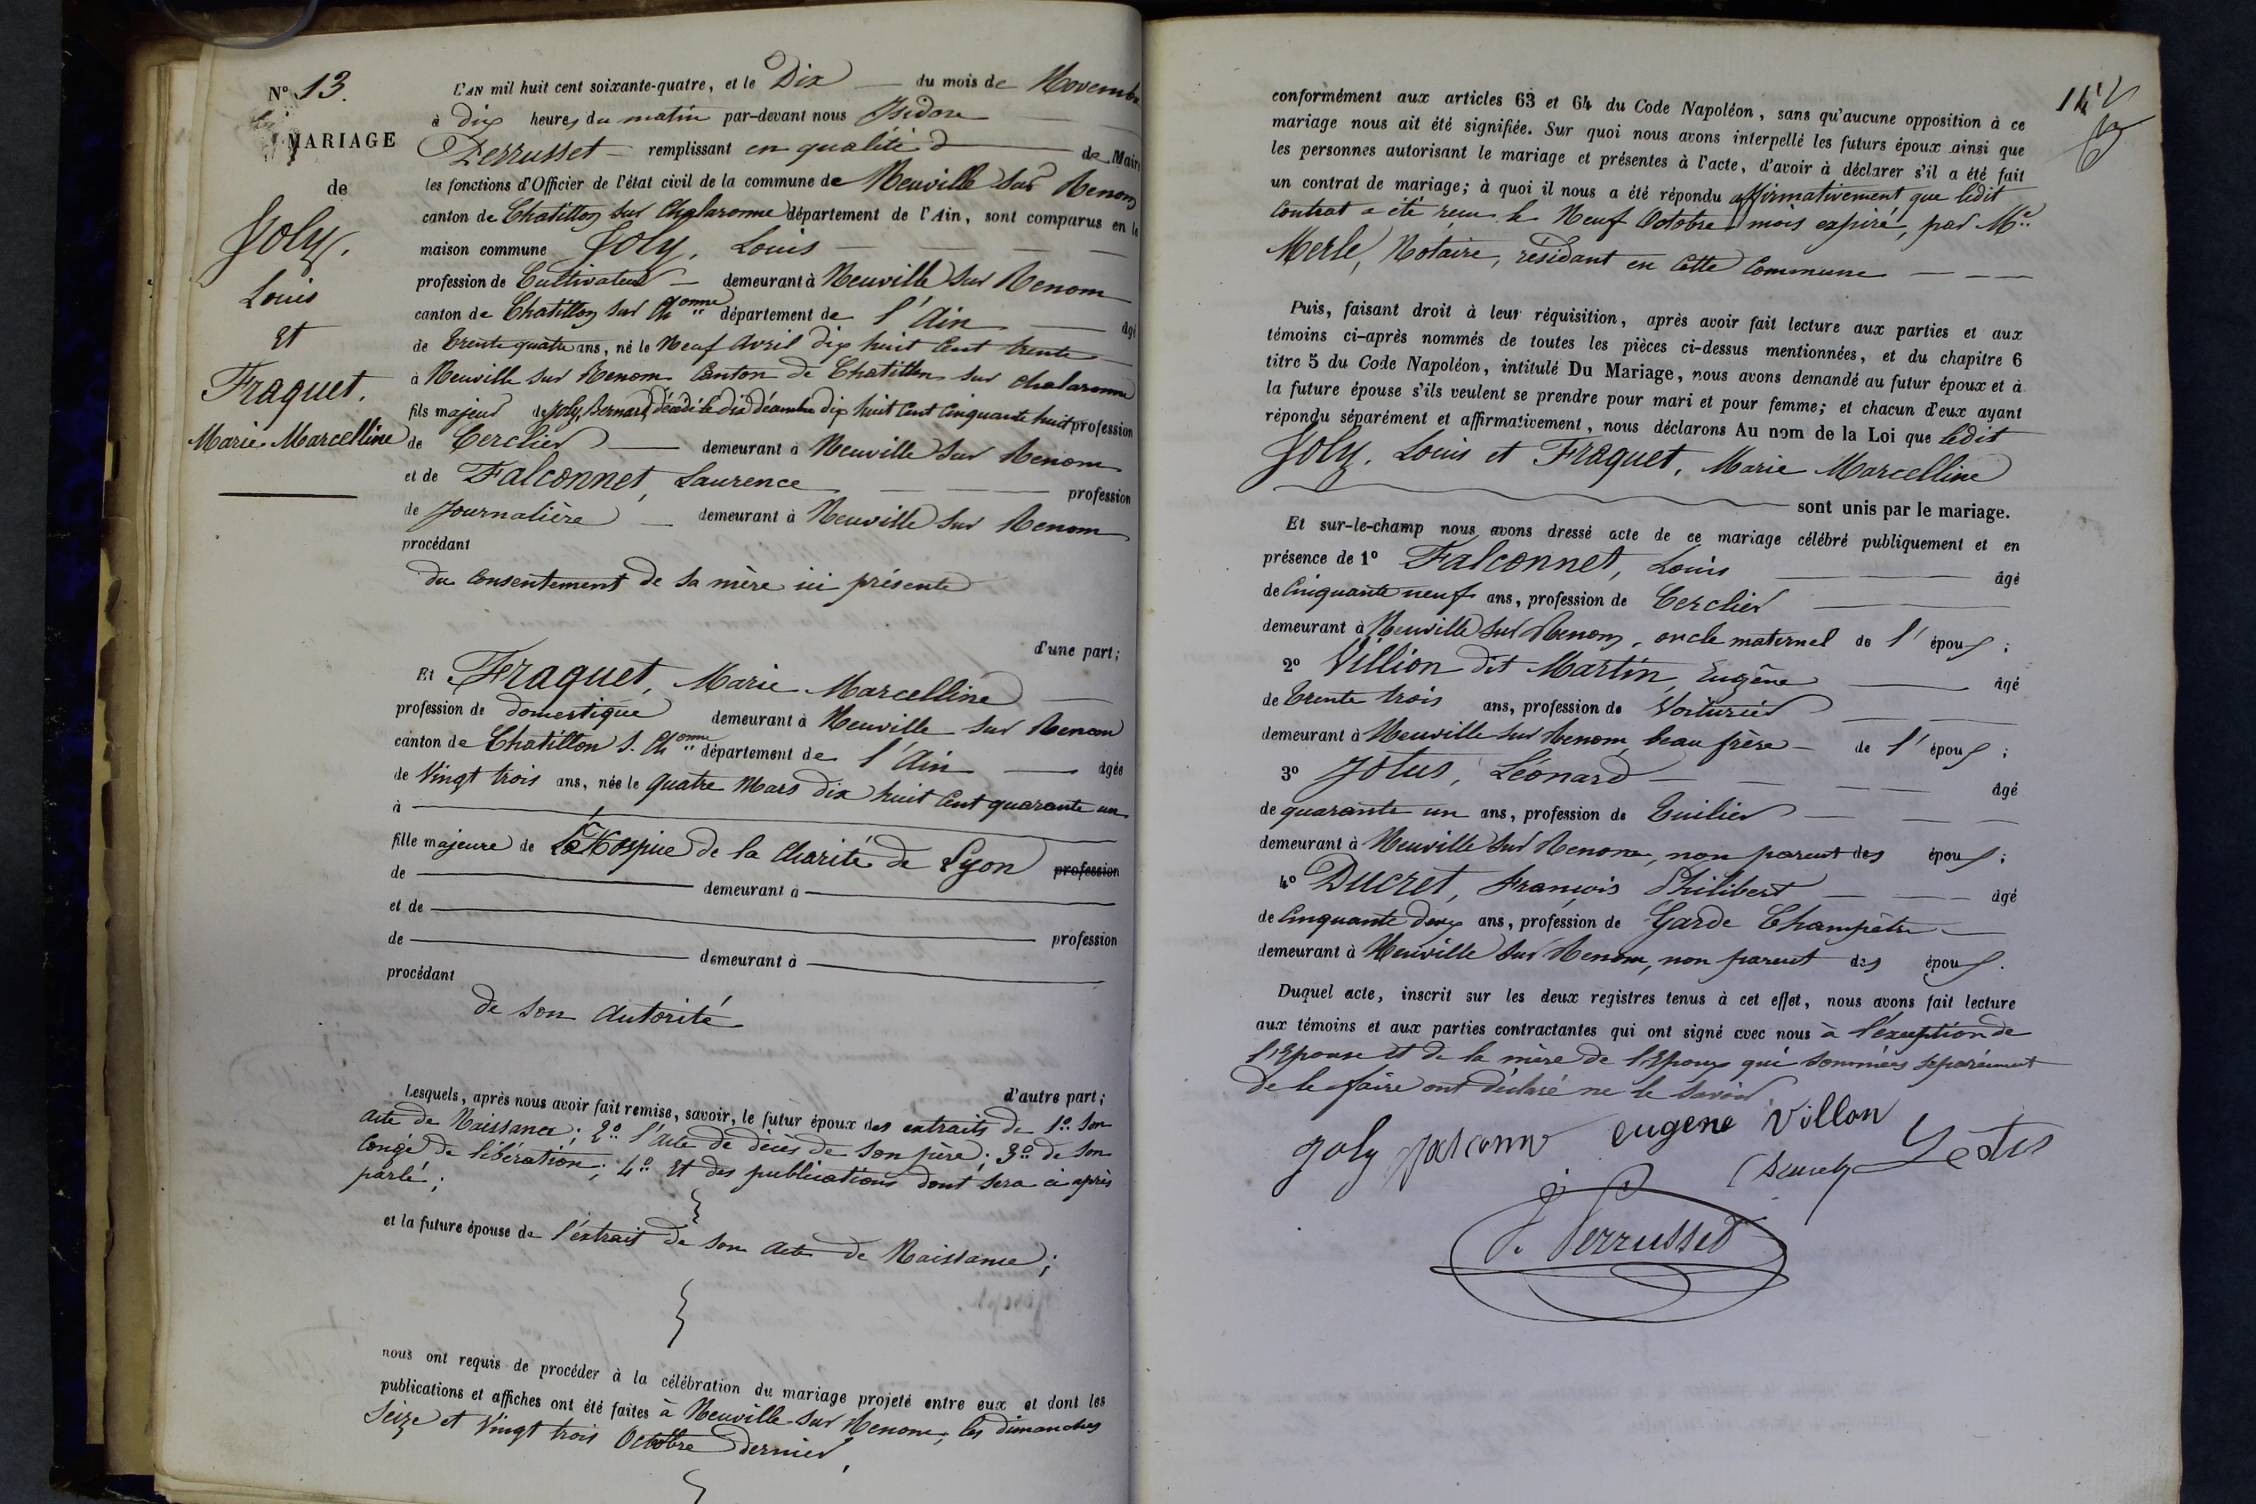 N° 13.
MARIAGE
de
Joly.
Louis
Et
Fraquet.
Marie Marcelline
L'AN mil huit cent soixante-quatre, et le Dix du mois de Novembre
à dix heures du matin par-devant nous Isidore
Perrusset remplissant en qualité de Maire
les fonctions d'Officier de l'état civil de la commune de Neuville sur Renom
canton de Chatillon sur Chalaronne département de l'Ain, sont comparus en la
maison commune Joly, Louis
profession de Cultivateur demeurant à Neuville sur Renom
canton de Chatillon sur Chonne département de l'Ain âgé
de Trente quatre ans, né le Neuf Avril dix huit Cent trente
à Neuville sur Renom Canton de Chatillon sur Chalaronne
fils majeur de Joly, Bernard, décédé le dix décembre dix huit Cent Cinquante huit profession
de Cerclier demeurant à Neuville sur Renom
et de Falconnet, Laurence profession
de Journalière demeurant à Neuville sur Renom
procédant
du Consentement de sa mère ici présente
d'une part;
Et Fraquet, Marie Marcelline
profession de domestique demeurant à Neuville sur Renom
canton de Chatillon s. Chonne département de l'Ain âgée
de Vingt trois ans, née le quatre Mars dix huit Cent quarante un
à
fille majeure de L'Hospice de la Charité de Lyon profession
de demeurant à
et de profession
de demeurant à
procédant
de son Autorité
d'autre part;
Lesquels, après nous avoir fait remise, savoir, le futur époux des extraits de 1° son
Acte de Naissance; 2° l'acte de décès de son père; 3° de son
Congé de libération; 4° Et des publications dont sera ci après
parlé;
et la future épouse de l'extrait de son Acte de Naissance;
nous ont requis de procéder à la célébration du mariage projeté entre eux et dont les
publications et affiches ont été faites à Neuville sur Renom, les dimanches
Seize et Vingt trois Octobre dernier,
conformément aux articles 63 et 64 du Code Napoléon, sans qu'aucune opposition à ce
mariage nous ait été signifiée. Sur quoi nous avons interpellé les futurs époux ainsi que
les personnes autorisant le mariage et présentes à l'acte, d'avoir à déclarer s'il a été fait
un contrat de mariage; à quoi il nous a été répondu affirmativement que ledit
Contrat a été reçu le Neuf Octobre mois expiré, par Me
Merle, Notaire, résidant en Cette Commune
Puis, faisant droit à leur réquisition, après avoir fait lecture aux parties et aux
témoins ci-après nommés de toutes les pièces ci-dessus mentionnées, et du chapitre 6
titre 5 du Code Napoléon, intitulé Du Mariage, nous avons demandé au futur époux et à
la future épouse s'ils veulent se prendre pour mari et pour femme; et chacun d'eux ayant
répondu séparément et affirmativement, nous déclarons Au nom de la Loi que ledit
Joly. Louis et Fraquet, Marie Marcelline
sont unis par le mariage.
Et sur-le-champ nous avons dressé acte de ce mariage célébré publiquement et en
présence de 1° Falconnet, Louis âgé
de Cinquante neuf ans, profession de Cerclier
demeurant à Neuville sur Renom, oncle maternel de l'époux;
2° Villion dit Martin, Eugène âgé
de Trente trois ans, profession de Voiturier
demeurant à Neuville sur Renom, beau frère de l'époux;
3° Jotus, Léonard âgé
de quarante un ans, profession de Tuilier
demeurant à Neuville sur Renom, non parent des époux;
4° Ducret, François Philibert âgé
de Cinquante deux ans, profession de Garde Champêtre
demeurant à Neuville sur Renom, non parent des époux.
Duquel acte, inscrit sur les deux registres tenus à cet effet, nous avons fait lecture
aux témoins et aux parties contractantes qui ont signé avec nous à l'exception de
l'Epouse et de la mère de l'Epoux qui sommées séparément
de le faire ont déclaré ne le savoir.
Joly eugene Villon
J. Perrusset